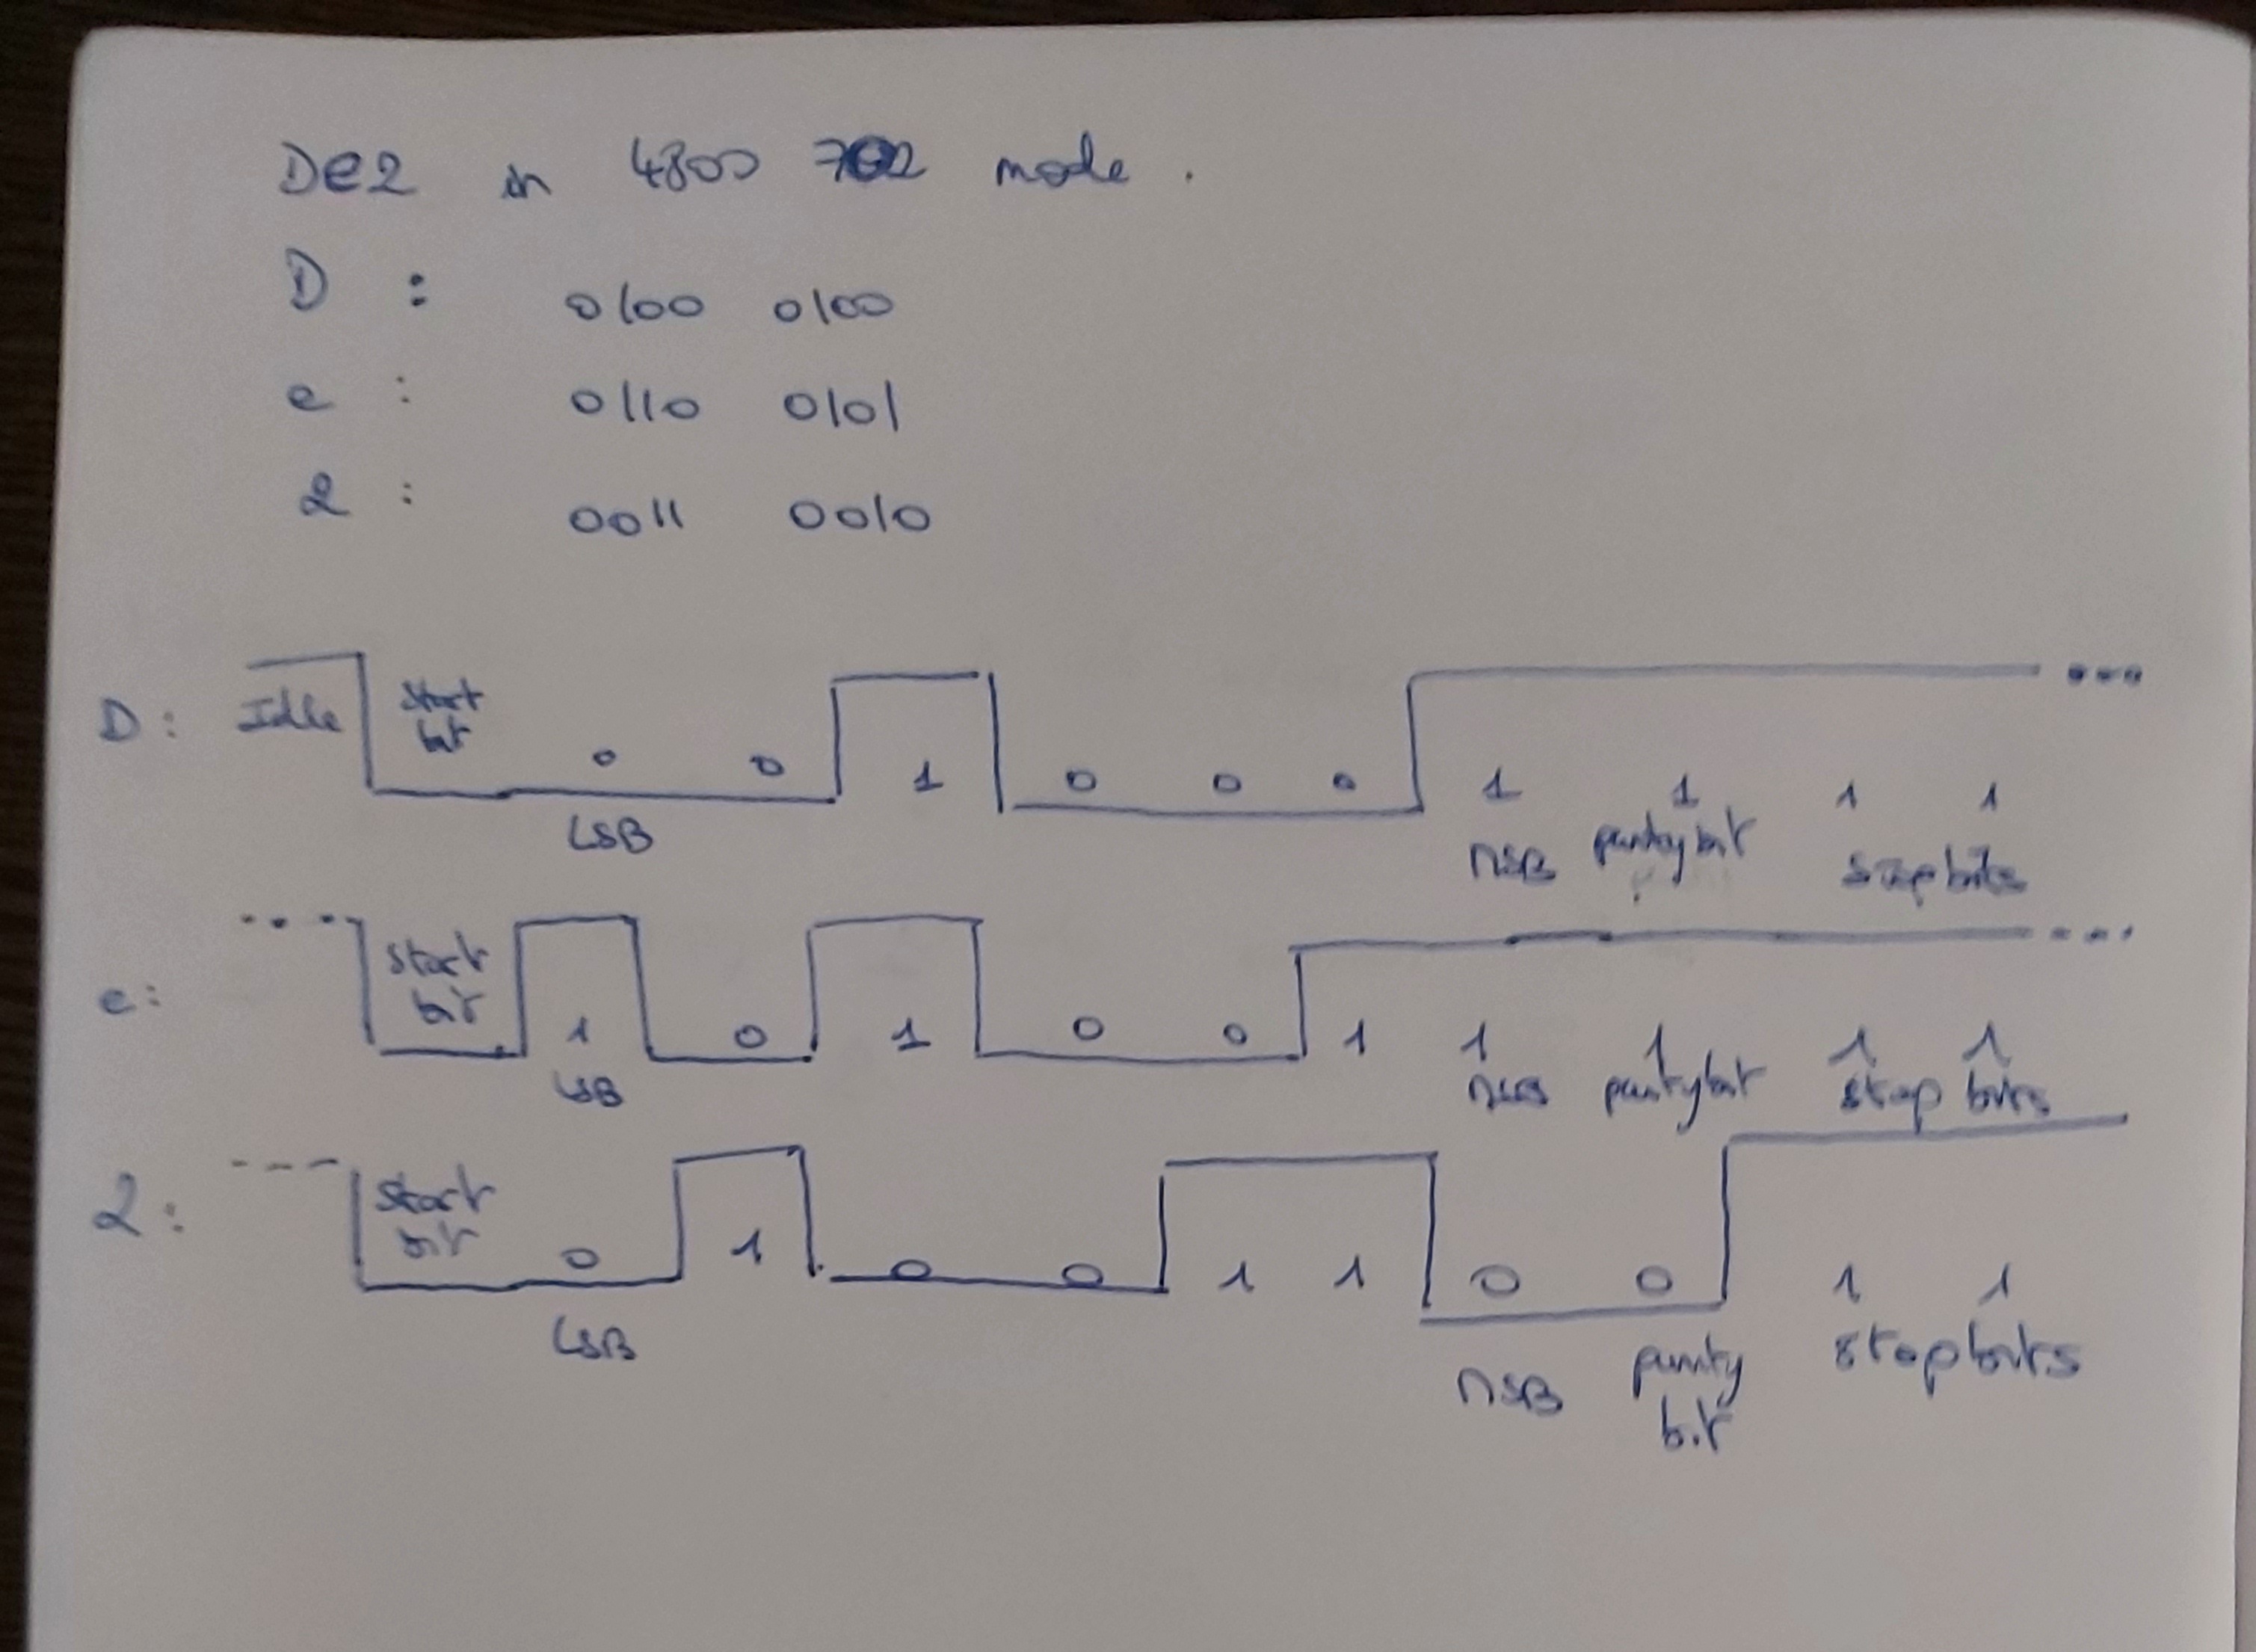 De2 in 4800 7O2 mode.
D : 0100 0100
e : 0110 0101
2 : 0011 0010
D: Idle Start bit 0 0 1 0 0 0 1 1 1 1
LSB MSB parity bit stop bits
e: Start bit 1 0 1 0 0 1 1 1 1 1
LSB MSB parity bit stop bits
2: Start bit 0 1 0 0 1 1 0 0 1 1
LSB MSB parity bit stop bits